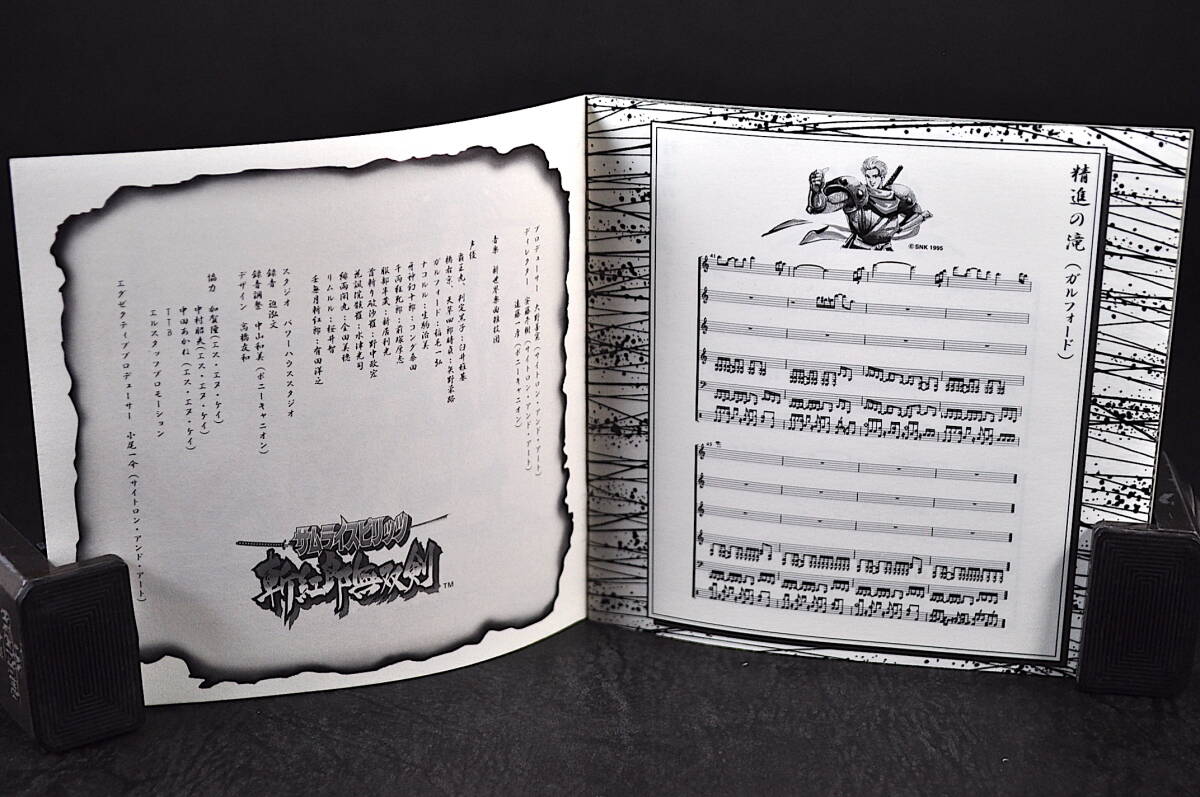 プロデューサー 大野善寛(サイトロン・アンド・アート)
ディレクター 安藤冬樹(サイトロン・アンド・アート)
遠藤一彦(ポニーキャニオン)
音楽 新世界楽曲雑技団
声優
覇王丸、判定黒子:臼井雅基
橘右京、天草四郎時貞:矢野栄路
ガルフォード:稲毛一弘
ナコルル:生駒治美
牙神幻十郎:コング桑田
千両狂死郎:前塚厚志
服部半蔵:新居利光
首斬り破沙羅:野中政宏
花諷院骸羅:水津光司
緋雨閑丸:金田美穂
リムルル:桜井智
壬無月斬紅郎:有田洋之
スタジオ パワーハウススタジオ
録音 迫泓文
録音調整 中山和美(ポニーキャニオン)
デザイン 高橋友和
協力 加賀隆(エス・エヌ・ケイ)
中村昭夫(エス・エヌ・ケイ)
中田あかね(エス・エヌ・ケイ)
エルスタッフプロモーション
エグゼクティブプロデューサー 小尾一介(サイトロン・アンド・アート)
サムライスピリッツ
斬紅郎無双剣
TM
精進の滝(ガルフォード)
©SNK 1995
41
43